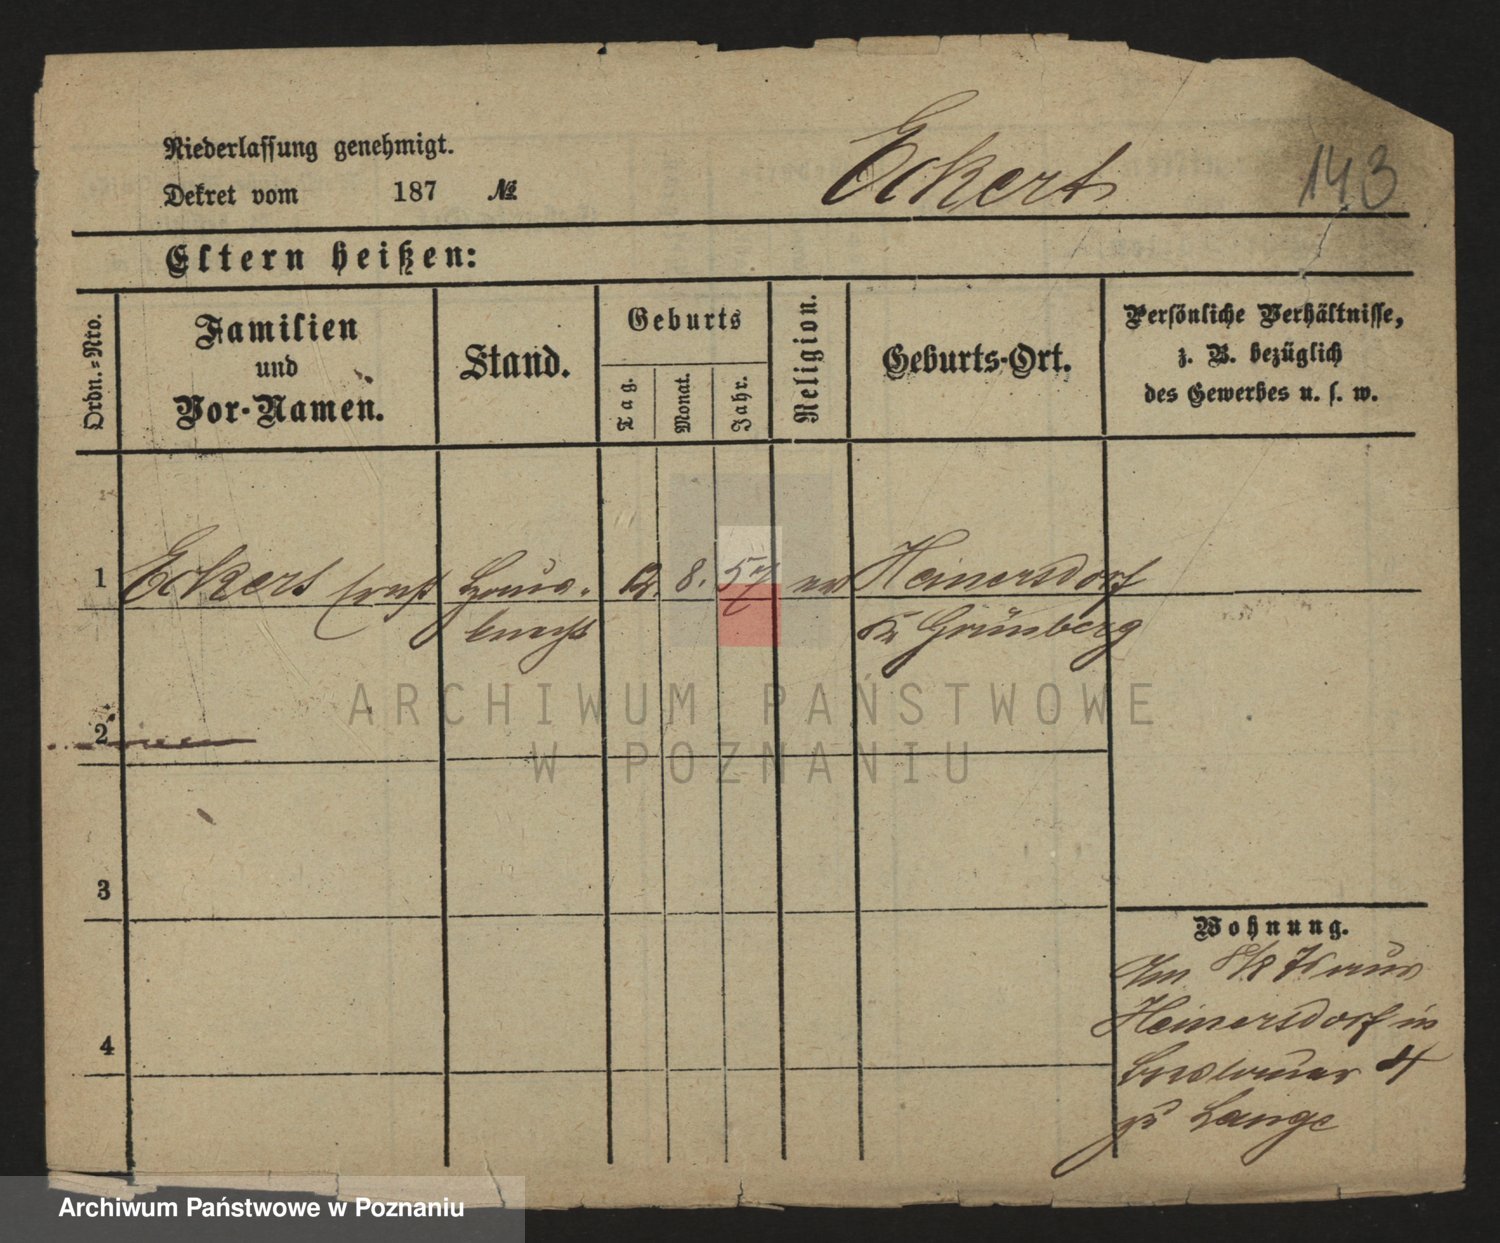 Niederlassung genehmigt.
Dekret vom 187 №
Eckert
143
Eltern heißen:
Ordn.=Nro.
Familien
und
Vor-Namen.
Stand.
Geburts
Tag.
Monat.
Jahr.
Religion.
Geburts-Ort.
Persönliche Verhältnisse,
z. B. bezüglich
des Gewerbes u. s. w.
1 Eckert Ernst Haus- 12. 8. 57 ev Heinersdorf
knecht Kr Grünberg
2
3
4
Wohnung.
Im 8/78 aus
Heinersdorf in
Breslauer 4
zu Lange
ARCHIWUM PAŃSTWOWE
W POZNANIU
Archiwum Państwowe w Poznaniu